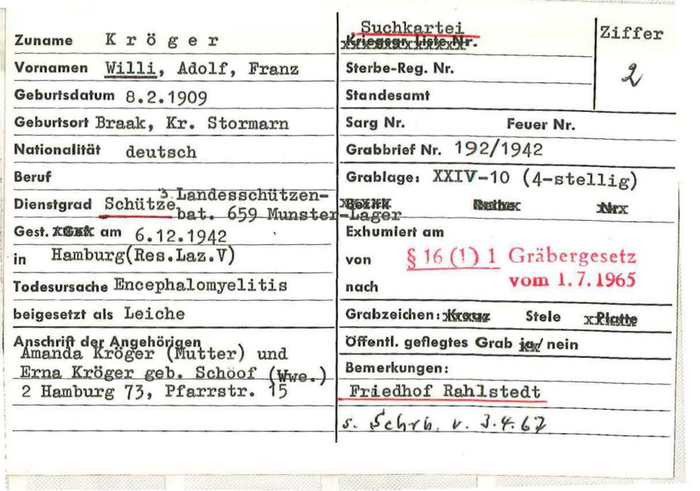 Zuname Kröger
Vornamen Willi, Adolf, Franz
Geburtsdatum 8.2.1909
Geburtsort Braak, Kr. Stormarn
Nationalität deutsch
Beruf
Dienstgrad Schütze 3. Landesschützen-
bat. 659 Munster-Lager
Gest. am 6.12.1942
in Hamburg(Res.Laz.V)
Todesursache Encephalomyelitis
beigesetzt als Leiche
Anschrift der Angehörigen
Amanda Kröger (Mutter) und
Erna Kröger geb. Schoof (Wwe.)
2 Hamburg 73, Pfarrstr. 15
Suchkartei
Kriegsgr. Liste Nr.
Ziffer
2
Sterbe-Reg. Nr.
Standesamt
Sarg Nr. Feuer Nr.
Grabbrief Nr. 192/1942
Grablage: XXIV-10 (4-stellig)
Bezirk Reihe Nr.
Exhumiert am
von § 16 (1) 1 Gräbergesetz
nach vom 1.7.1965
Grabzeichen: Kreuz Stele Platte
Öffentl. gepflegtes Grab ja/ nein
Bemerkungen:
Friedhof Rahlstedt
s. Schrb. v. 3.4.67